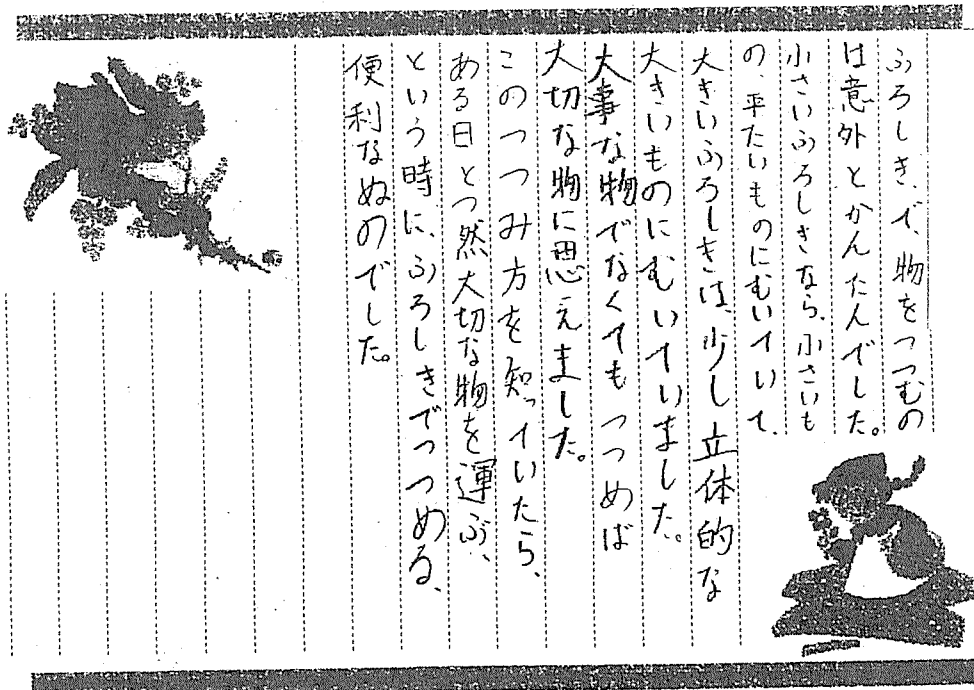 ふろしき、で、物をつつむの
は意外とかんたんでした。
小さいふろしきなら、小さいも
の、平たいものにむいていて、
大きいふろしきは、少し立体的な
大きいものにむいていました。
大事な物でなくてもつつめば
大切な物に思えました。
このつつみ方を知っていたら、
ある日とつ然大切な物を運ぶ、
という時に、ふろしきでつつめる、
便利なぬのでした。